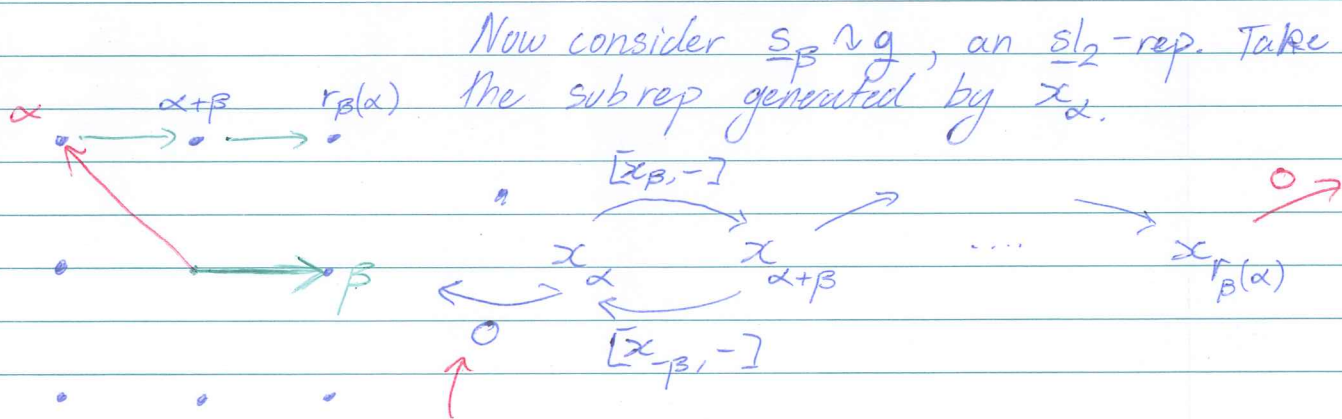 Now consider s_β ↷ g, an sl_2-rep. Take
the subrep generated by x_α.
α α+β r_β(α)
β
[x_β, -] 0
x_α x_{α+β} .... x_{r_β(α)}
0 [x_{-β}, -]